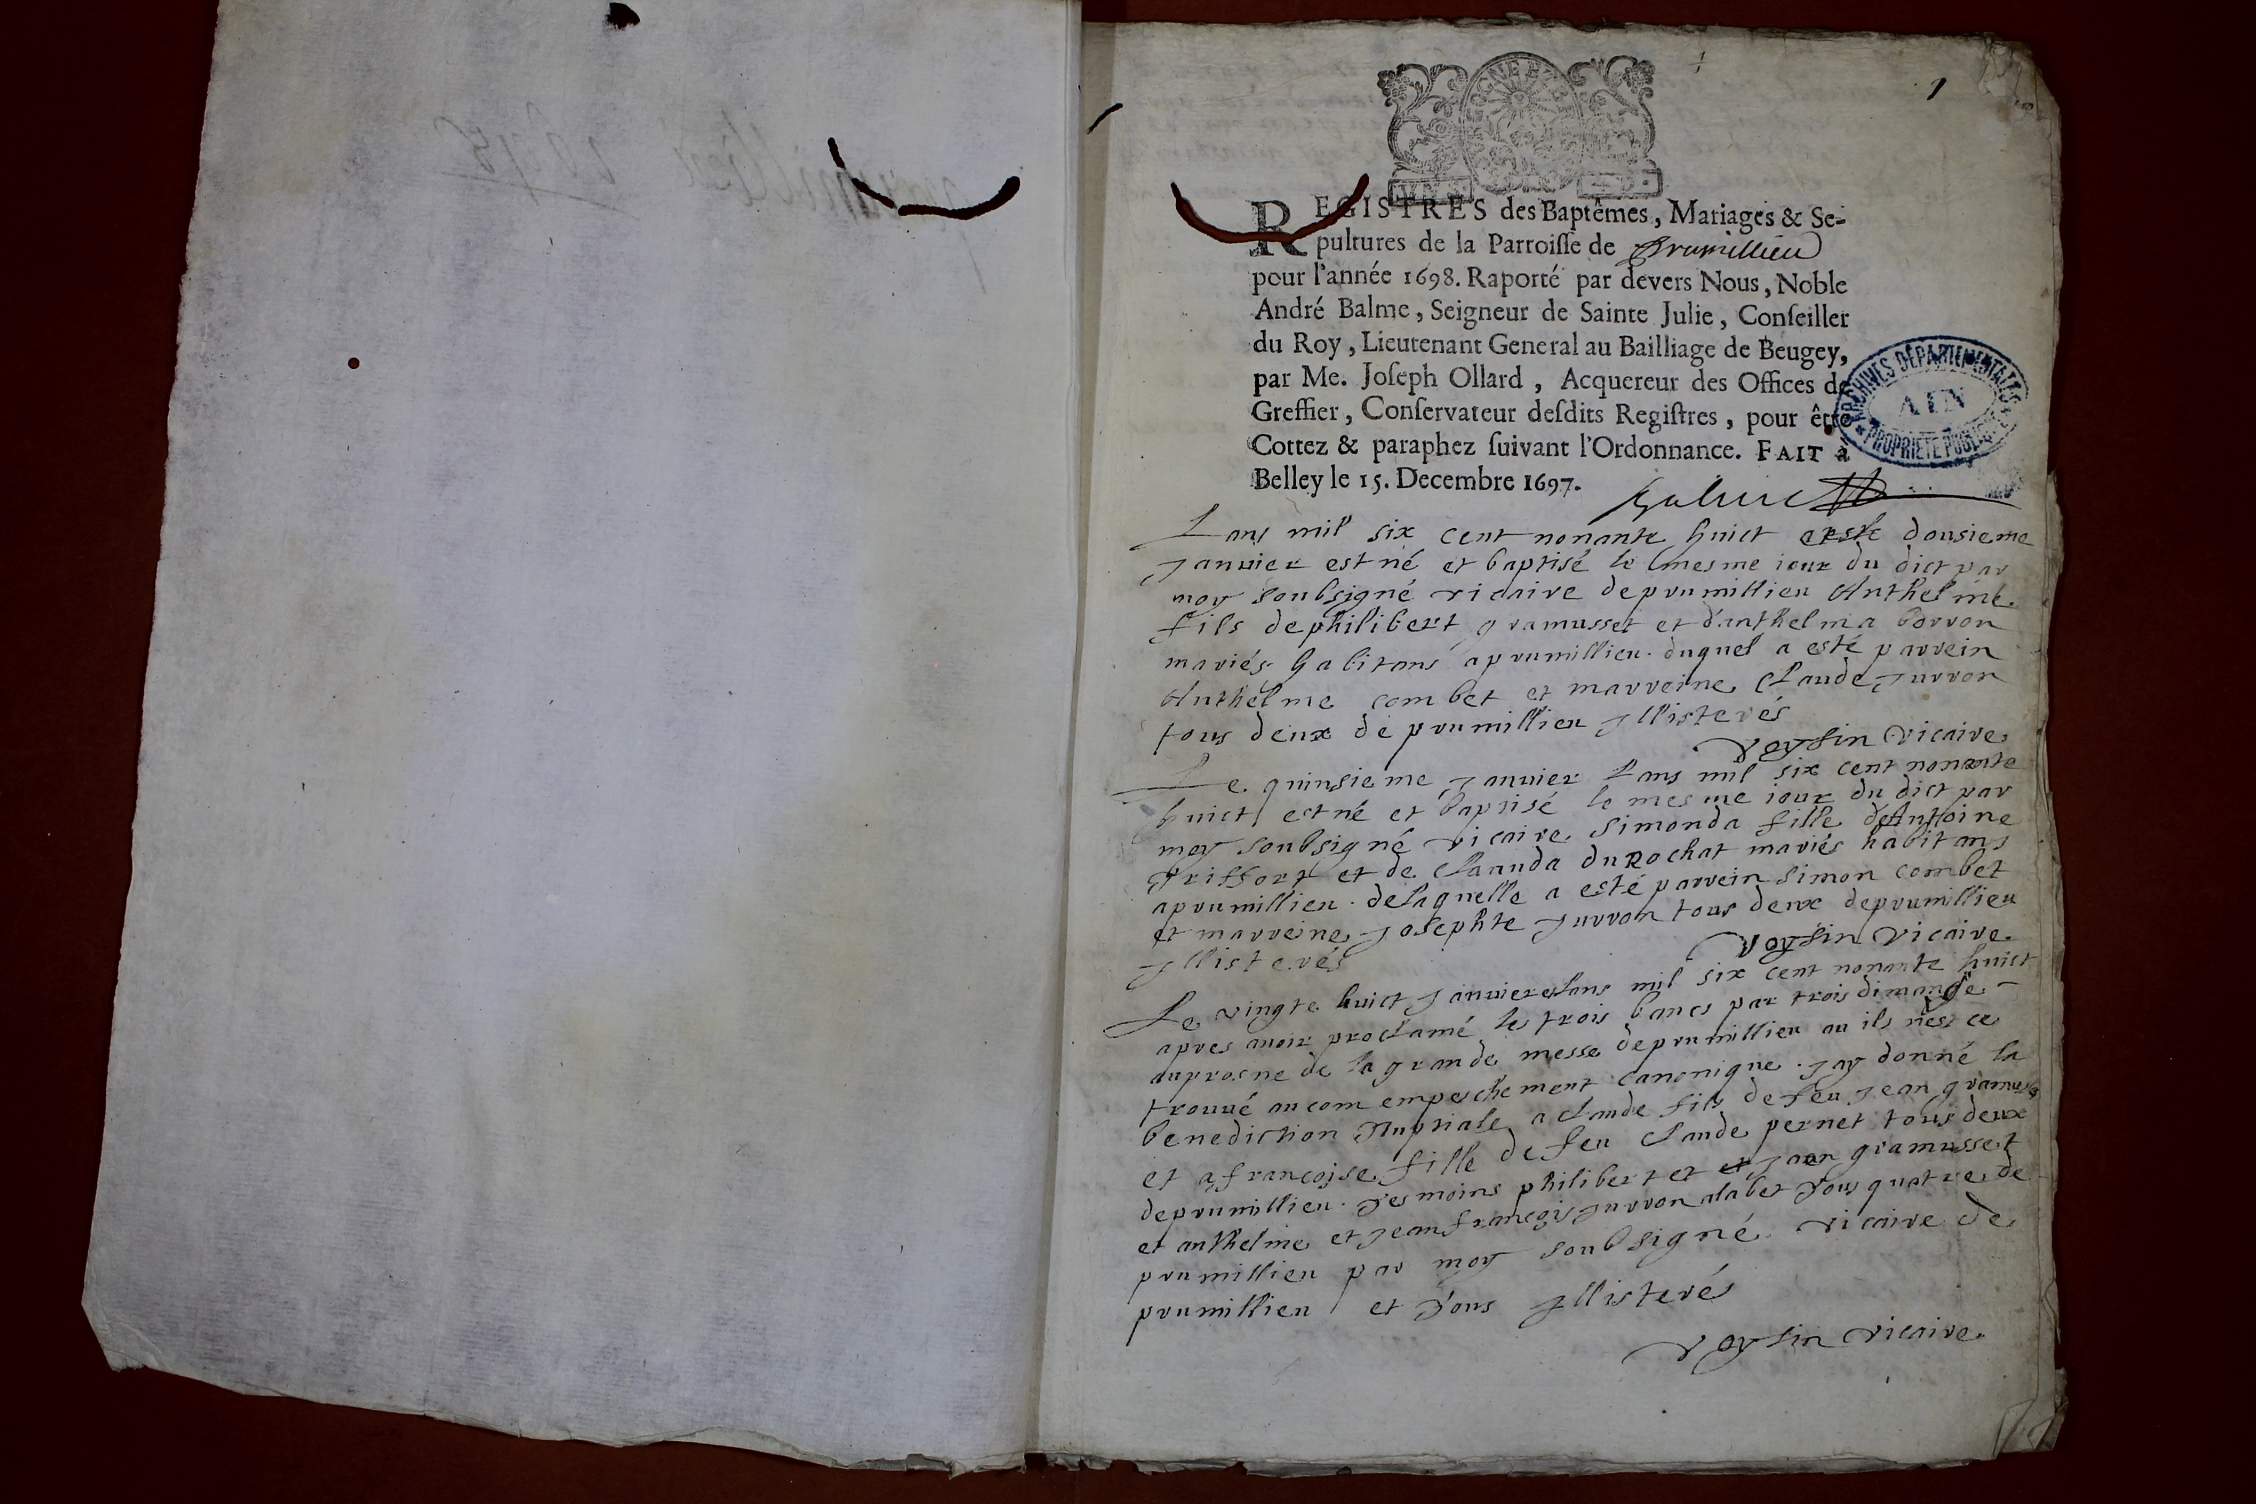 1
REGISTRES des Baptêmes, Mariages & Se-
pultures de la Parroisse de Prumillieu
pour l'année 1698. Raporté par devers Nous, Noble
André Balme, Seigneur de Sainte Julie, Conseiller
du Roy, Lieutenant General au Bailliage de Beugey,
par Me. Joseph Ollard, Acquereur des Offices de
Greffier, Conservateur desdits Registres, pour être
Cottez & paraphez suivant l'Ordonnance. FAIT à
Belley le 15. Decembre 1697.
ARCHIVES DÉPARTEMENTALES
AIN
PROPRIÉTÉ PUBLIQUE
Balme
Lans mil six cent nonante huict et le dousieme
Janvier est né et baptisé le mesme iour du dict par
moy soubsigné vicaire de prumillieu Anthelme
fils de philibert gramusset et d'anthelma borron
mariés habitans a prumillieu. duquel a esté parrein
Anthelme combet et marreine Claude Jurron
tous deux de prumillieu Illisterés
Voysin vicaire
Le quinsieme Janvier Lans mil six cent nonante
huict est né et baptisé le mesme iour du dict par
moy soubsigné vicaire Simonda fille d'Antoine
Triffort et de Clauda du Rochat mariés habitans
a prumillieu. de laquelle a esté parrein simon combet
et marreine Josephte Jurron tous deux de prumillieu
Illisterés
Voysin vicaire
Le vingte huict Janvier Lans mil six cent nonante huict
apres avoir proclamé les trois bancs par trois dimange
au prosne de la grande messe de prumillieu au ils nest ce
trouvé aucom empeschement canonique. Jay donné la
benediction Nuptiale a claude fils de feu Jean gramusset
et a françoise fille de feu Claude pernet tous deux
de prumillieu. Tesmoins philibert et et Jean gramusset
et anthelme et Jean françois Jurron alabet Tous quatre de
prumillieu par moy soubsigné vicaire de
prumillieu et Tous Illisterés
Voysin vicaire